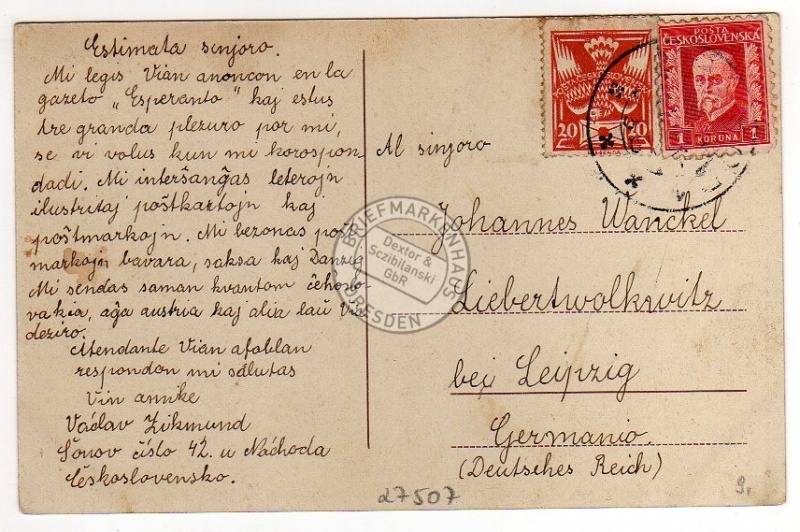 Estimata sinjoro.
Mi legis Vian anoncon en la
gazeto „Esperanto" kaj estus
tre granda plezuro por mi,
se vi volus kun mi korospon-
dadi. Mi interŝanĝas leterojn
ilustritaj poŝtkartojn kaj
poŝtmarkojn. Mi bezonas poŝt
markojn bavara, saksa kaj Danzig
Mi sendas saman kvantom ĉeho
vakia, aĝa austria kaj alia laŭ Via
deziro.
Atendante Vian afablan
respondon mi salutas
Vin amike
Václav Zikmund
Šonov číslo 42. u Náchoda
Československo.
POŠTA
ČESKOSLOVENSKÁ
1 KORUNA 1
ČESKOSLOVENSKÁ
20 20
Al sinjoro
Johannes Wanckel
Liebertwolkwitz
bei Leipzig
Germanio.
(Deutsches Reich)
27507
9.
BRIEFMARKENHAUS
Dextor &
Sczibilanski
GbR
DRESDEN